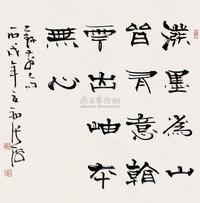 潑墨為山
皆有意看
雲出岫本
無心
丙戌年